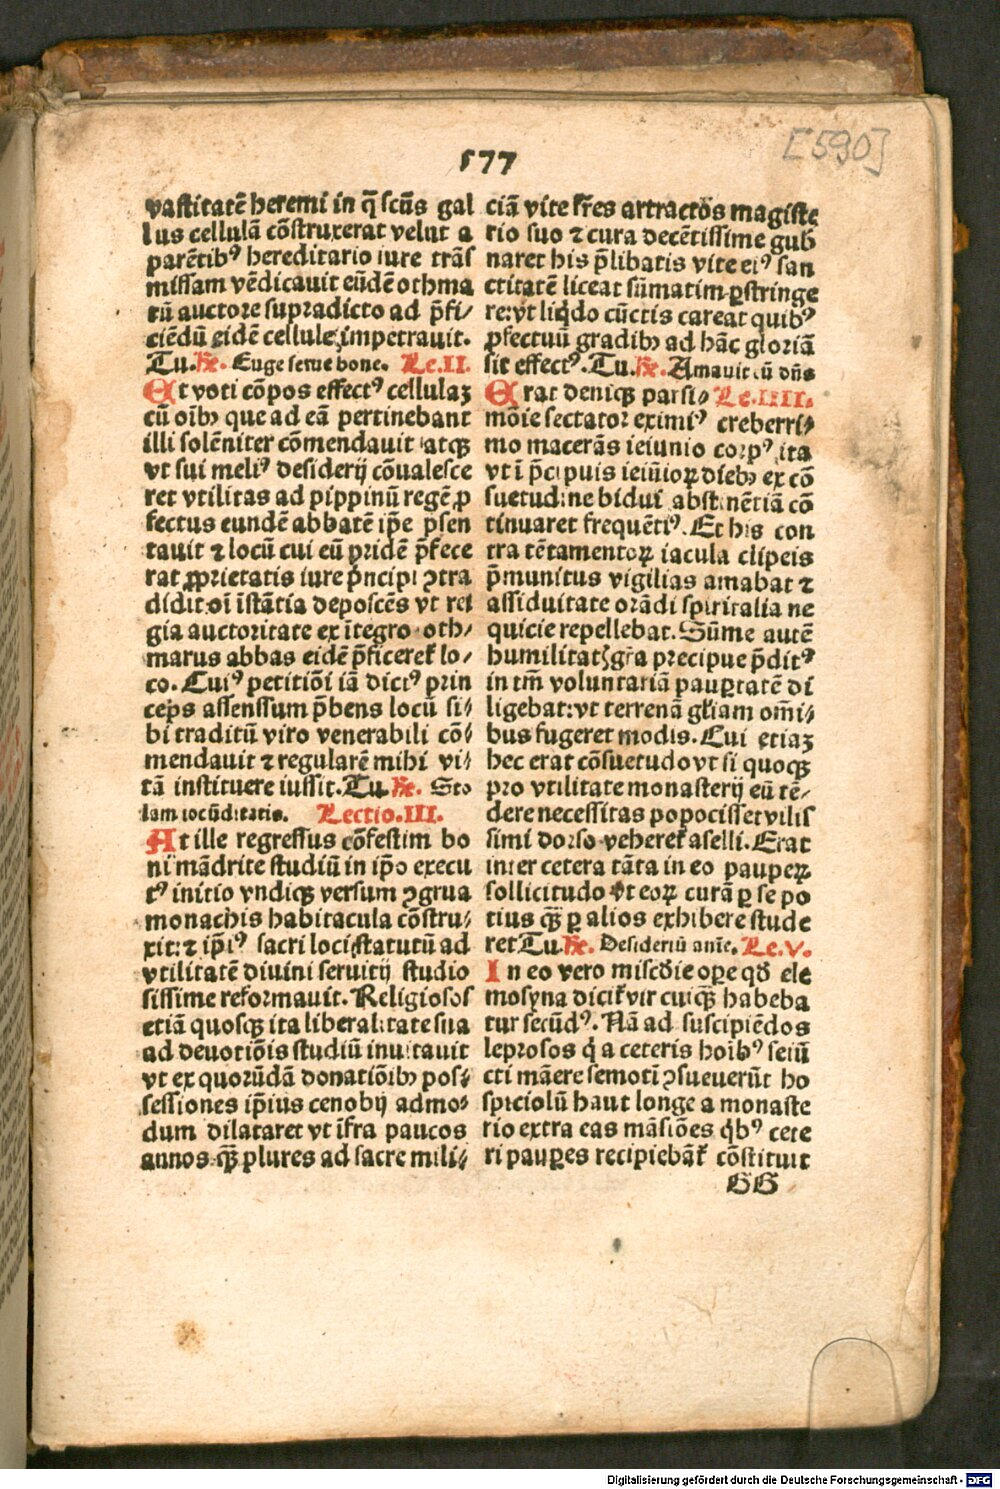 577
[590]
vastitatē heremi in q̄ scūs gal
lus cellulā cōstruxerat velut a
parētibꝰ hereditario iure trās
missam vēdicauit eūdē othma
rū auctore supradicto ad p̄fi⸗
ciēdū eidē cellule impetrauit.
Tu.℟. Euge serue bone. Le.II.
Et voti cōpos effectꝰ cellulaꝫ
cū oīb que ad eā pertinebant
illi solēniter cōmendauit atqꝫ
vt sui meliꝰ desiderij cōualesce
ret vtilitas ad pippinū regē ꝓ
fectus eundē abbatē ip̄e p̄sen
tauit ⁊ locū cui eū pridē p̄fece
rat ꝓprietatis iure p̄ncipi ꝯtra
didit:oī īstātia deposcēs vt re
gia auctoritate ex ītegro oth⸗
marus abbas eidē p̄ficereť lo⸗
co. Cuiꝰ petitiōi iā dictꝰ prin
ceps assenssum p̄bens locū si⸗
bi traditū viro venerabili cō⸗
mendauit ⁊ regularē mihi vi⸗
tā instituere iussit. Tu.℟. Sto
lam iocūditatis. Lectio.III.
At ille regressus cōfestim bo
ni mādrite studiū in ip̄o execu
tꝰ initio vndiqꝫ versum ꝯgrua
monachis habitacula cōstru⸗
xit:⁊ ip̄iꝰ sacri loci statutū ad
vtilitatē diuini seruitij studio
sissime reformauit. Religiosos
etiā quosqꝫ ita liberalitate sua
ad deuotiōis studiū inuitauit
vt ex quorūdā donatiōib pos⸗
sessiones ip̄ius cenobij admo⸗
dum dilataret vt īfra paucos
annos qꝫ̄ plures ad sacre mili⸗
ciā vite fr̄es attractos magiste
rio suo ⁊ cura decētissime gub̄
naret his p̄libatis vite eiꝰ san
ctitatē liceat sūmatim ꝑstringe
re:vt liqdo cūctis careat quibꝰ
ꝓfectuū gradib ad hāc gloriā
sit effectꝰ. Tu.℟. Amauit eū dn̄s
Erat deniqꝫ parsi⸗ Le.IIII.
mōie sectator eximiꝰ creberri⸗
mo macerās ieiunio corpꝰ ita
vt ī p̄cipuis ieiūioꝝ dieb ex cō
suetudine bidui abstinētiā cō
tinuaret frequētiꝰ. Et his con
tra tētamentoꝝ iacula clipeis
p̄munitus vigilias amabat ⁊
assiduitate orādi spiritalia ne
quicie repellebat. Sūme autē
humilitatꝭ gr̄a precipue p̄ditꝰ
in tm̄ voluntariā pauꝑtatē di
ligebat:vt terrenā gl̄iam om̄i⸗
bus fugeret modis. Cui etiaꝫ
hec erat cōsuetudo vt si quoqꝫ
pro vtilitate monasterij eū tē⸗
dere necessitas popocisset vilis
simi dorso vehereť aselli. Erat
inter cetera tāta in eo pauperꝝ
sollicitudo vt eoꝝ curā ꝑ se po
tius qꝫ̄ ꝑ alios exhibere stude
ret Tu.℟. Desideriū anīe. Le.V.
In eo vero misc̄die oꝑe qd̄ ele
mosyna diciť vir cuiqꝫ̄ habeba
tur secūdꝰ. Nā ad suscipiēdos
leprosos q̇ a ceteris hoībꝰ seiū
cti māere semoti ꝯsueuerūt ho
spiciolū haut longe a monaste
rio extra eas māsiōes q̇bꝰ cete
ri pauꝑes recipiebāť cōstituit
GG
Digitalisierung gefördert durch die Deutsche Forschungsgemeinschaft - DFG